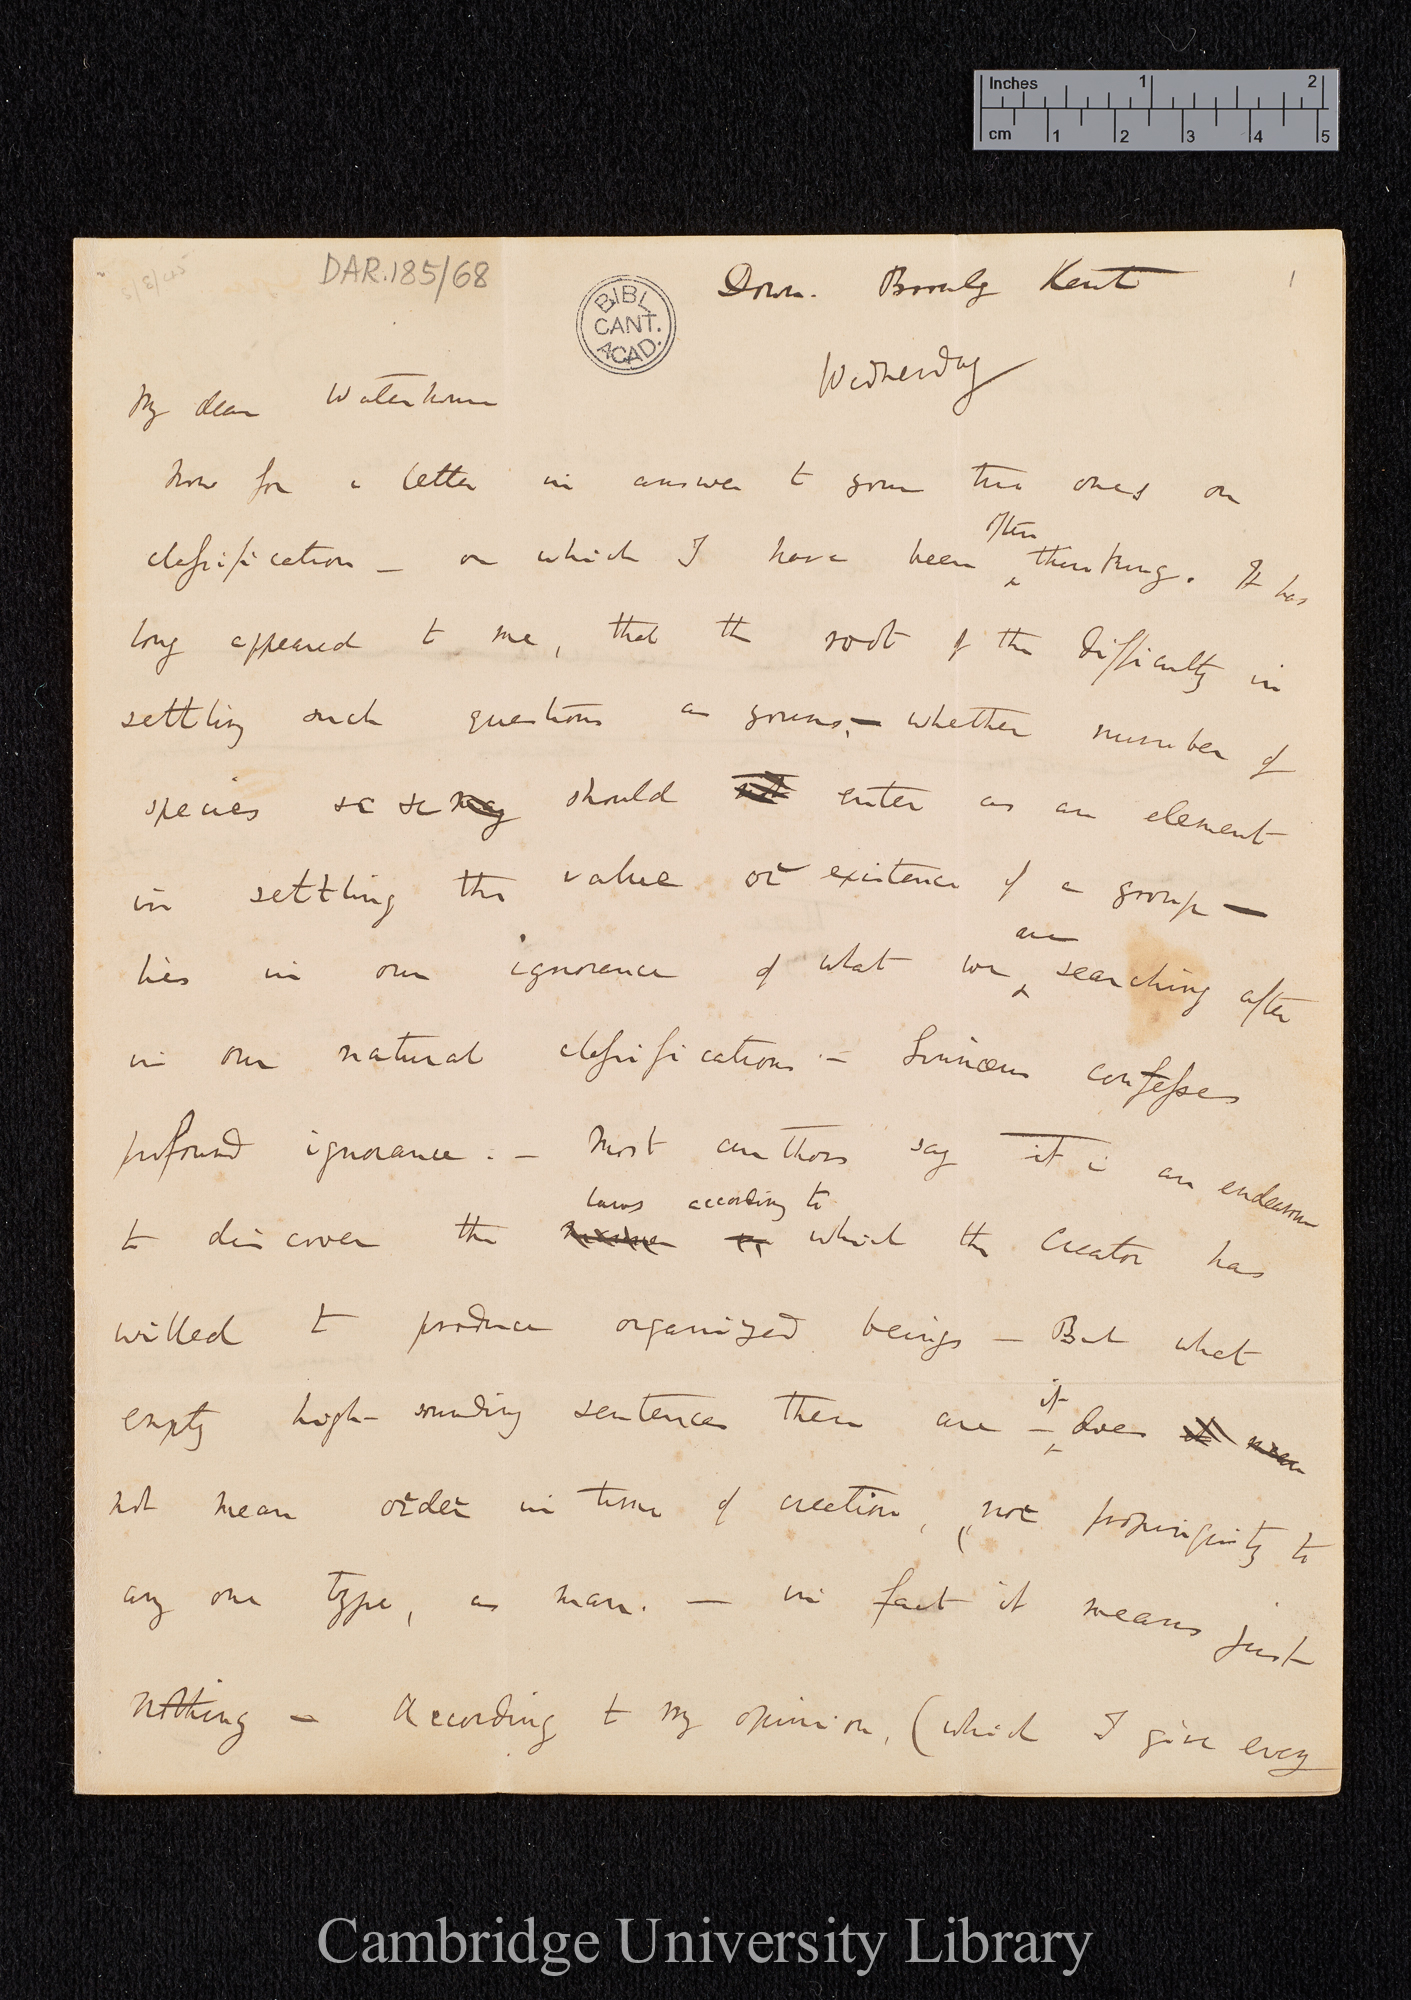 Inches 1 2
cm 1 2 3 4 5
DAR.185/68
BIBL.
CANT.
ACAD.
Down. Bromley Kent
1
Wednesday
My dear Waterhouse
Now for a letter in answer to your two ones on
classification — on which I have been often thinking. It has
long appeared to me, that the root of the difficulty in
settling such questions as yours,— whether number of
species &c &c should enter as an element
in settling the value or existence of a group —
lies in our ignorance of what we are searching after
in our natural classifications.— Linnæus confesses
profound ignorance.— Most authors say it is an endeavour
to discover the laws according to which the Creator has
willed to produce organized beings — But what
empty high-sounding sentences these are — it does
not mean order in time of creation, nor propinquity to
any one type, as man.— in fact it means just
nothing — According to my opinion, (which I give every
Cambridge University Library